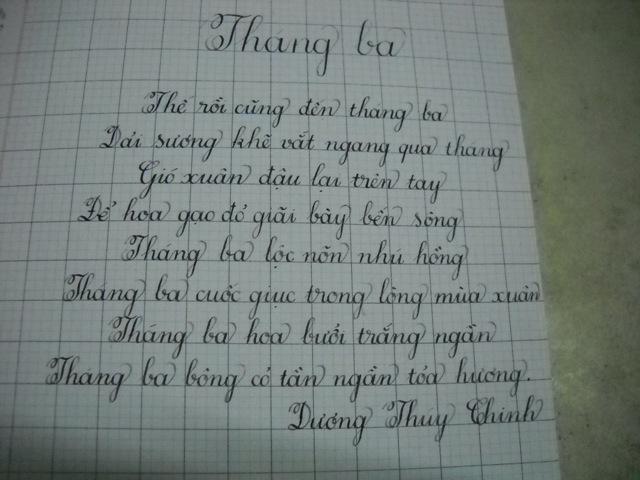 Tháng ba
Thế rồi cũng đến tháng ba
Dải sương khẽ vắt ngang qua tháng
Gió xuân đậu lại trên tay
Để hoa gạo đỏ giãi bày bến sông
Tháng ba lộc nõn nhú hồng
Tháng ba cuốc giục trong lòng mùa xuân
Tháng ba hoa bưởi trắng ngần
Tháng ba bông cỏ tần ngần tỏa hương.
Dương Thúy Chinh